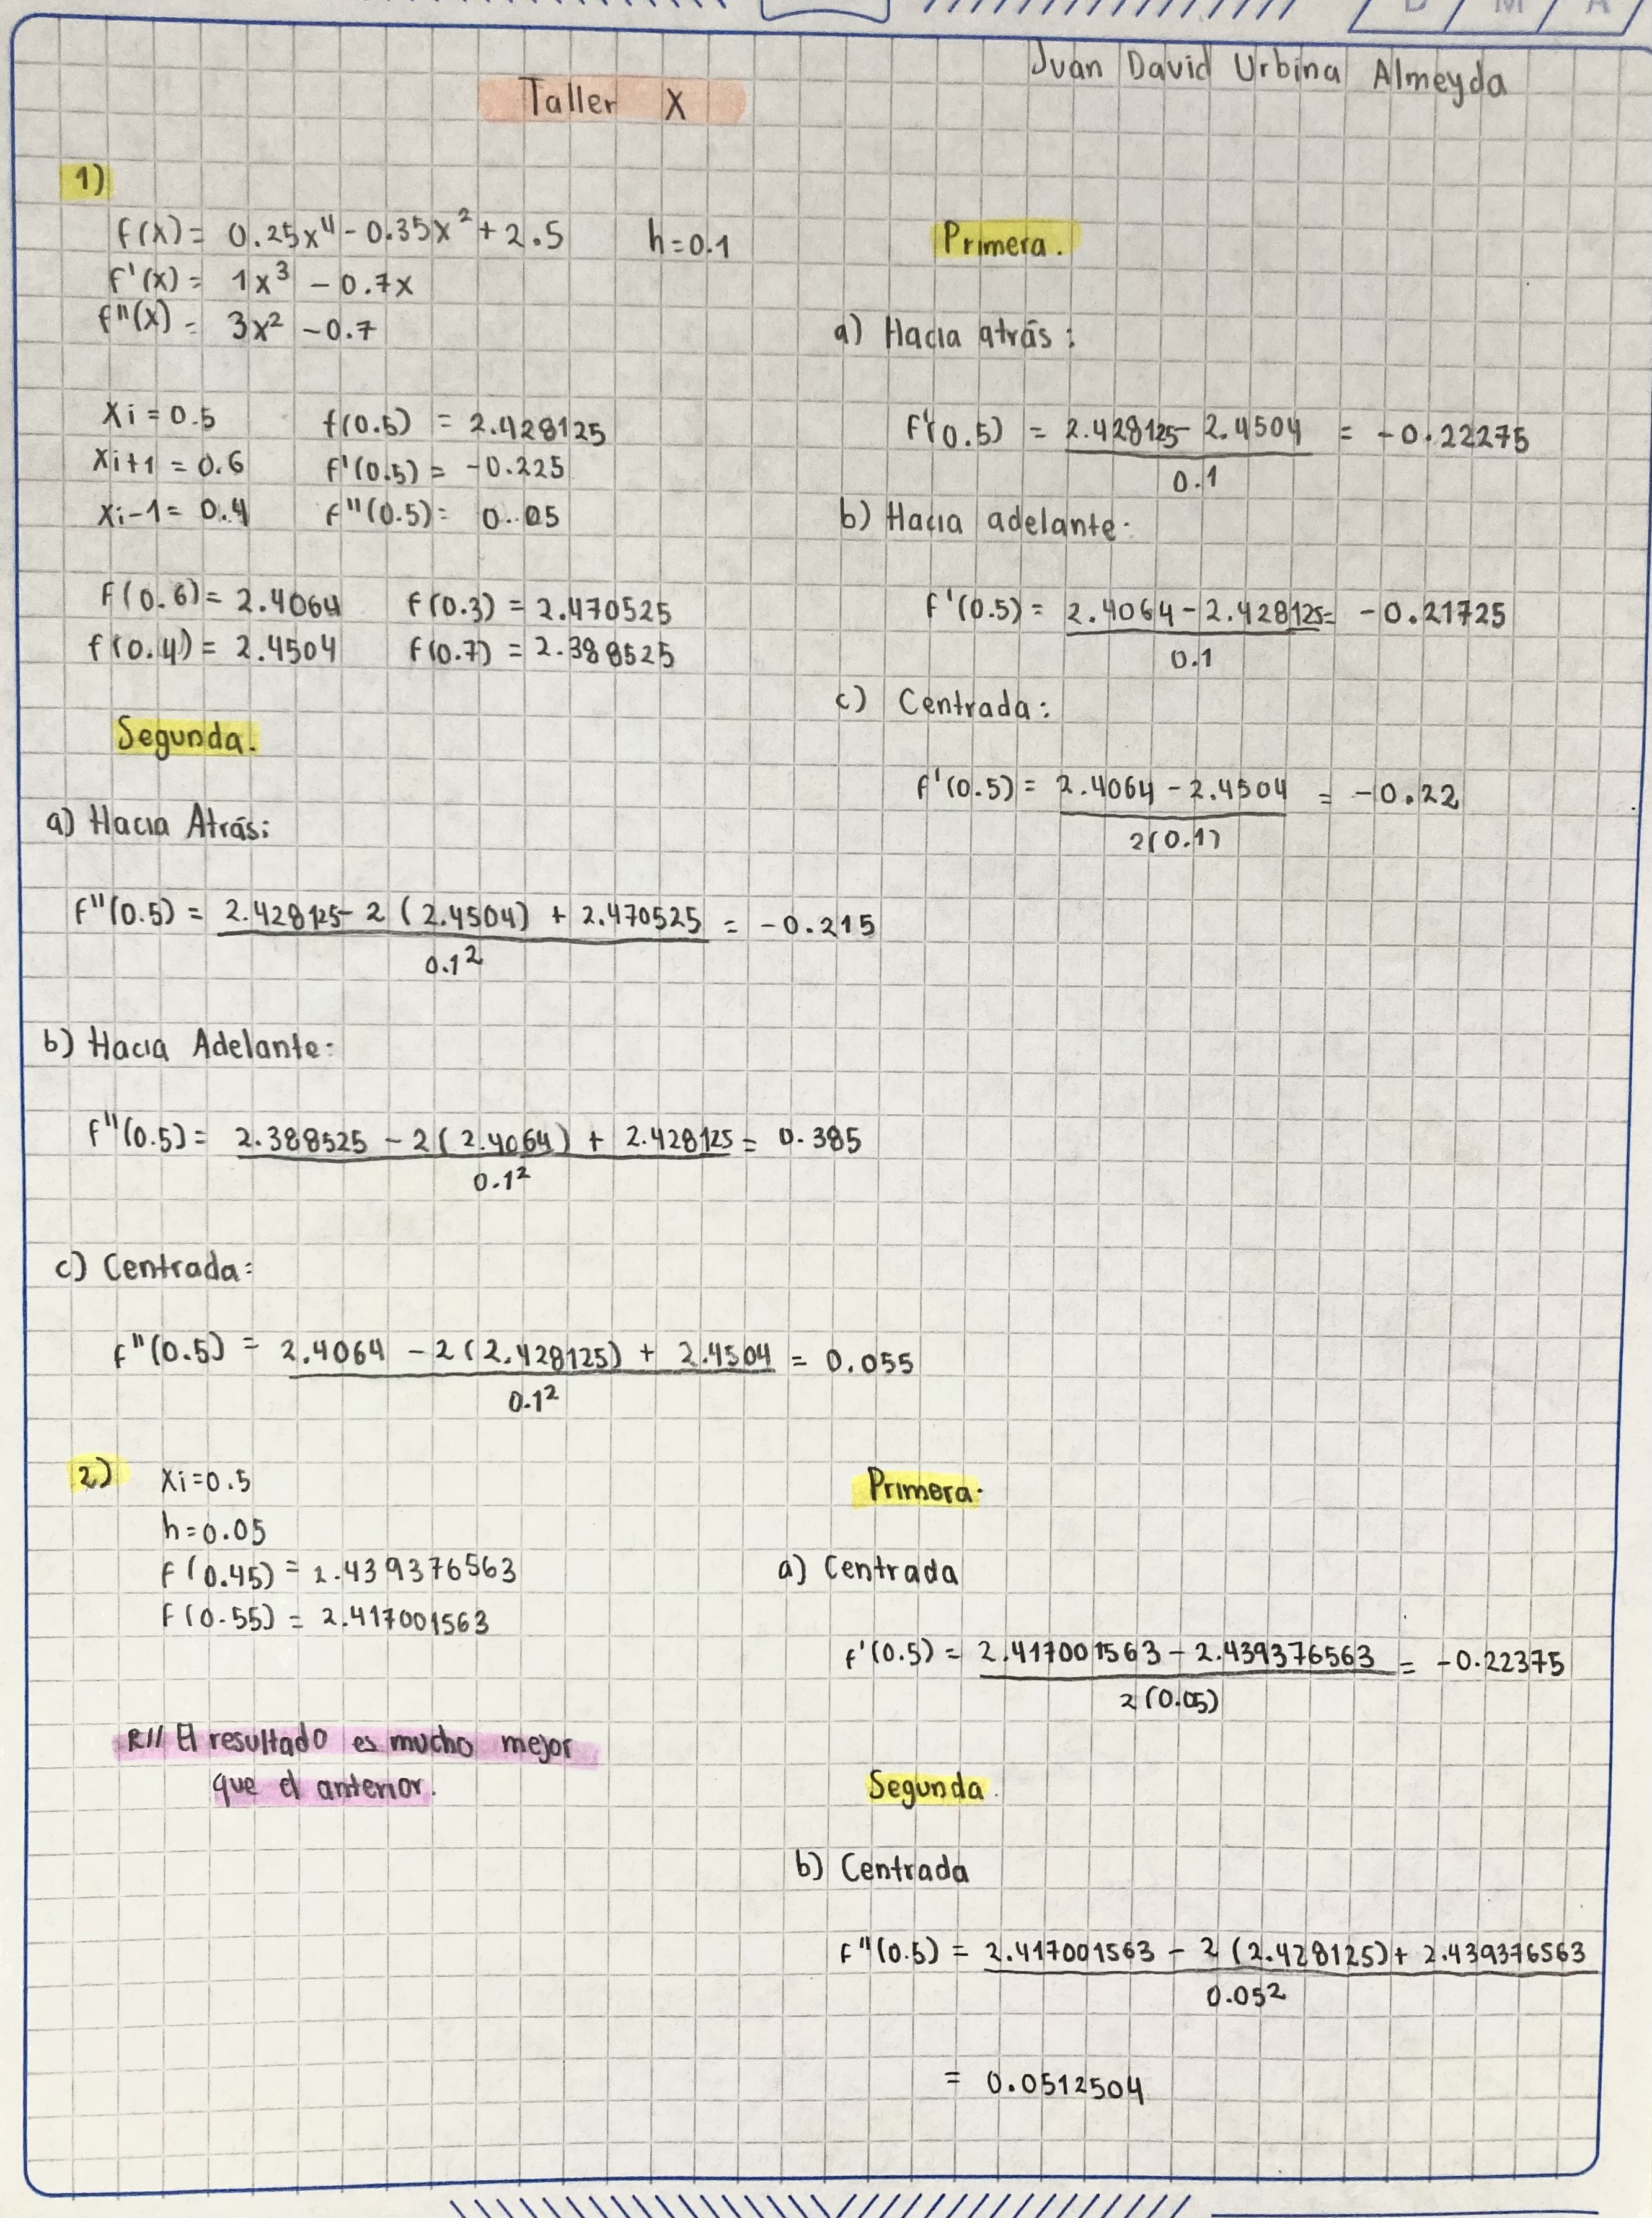 D / M / A
Juan David Urbina Almeyda
Taller X
1)
f(x) = 0.25x⁴ - 0.35x² + 2.5 h=0.1
f'(x) = 1x³ - 0.7x
f''(x) = 3x² - 0.7
Xi = 0.5 f(0.5) = 2.428125
Xi+1 = 0.6 f'(0.5) = -0.225
Xi-1 = 0.4 f''(0.5) = 0.05
f(0.6) = 2.4064 f(0.3) = 2.470525
f(0.4) = 2.4504 f(0.7) = 2.388525
Primera.
a) Hacia atrás:
f'(0.5) = 2.428125 - 2.4504 = -0.22275
0.1
b) Hacia adelante:
f'(0.5) = 2.4064 - 2.428125 = -0.21725
0.1
c) Centrada:
f'(0.5) = 2.4064 - 2.4504 = -0.22
2(0.1)
Segunda.
a) Hacia Atrás:
f''(0.5) = 2.428125 - 2 (2.4504) + 2.470525 = -0.215
0.1²
b) Hacia Adelante:
f''(0.5) = 2.388525 - 2(2.4064) + 2.428125 = 0.385
0.1²
c) Centrada:
f''(0.5) = 2.4064 - 2(2.428125) + 2.4504 = 0.055
0.1²
2) Xi=0.5
h=0.05
f(0.45) = 2.439376563
f(0.55) = 2.417001563
R// El resultado es mucho mejor
que el anterior.
Primera.
a) Centrada
f'(0.5) = 2.417001563 - 2.439376563 = -0.22375
2(0.05)
Segunda.
b) Centrada
f''(0.5) = 2.417001563 - 2 (2.428125) + 2.439376563
0.05²
= 0.0512504